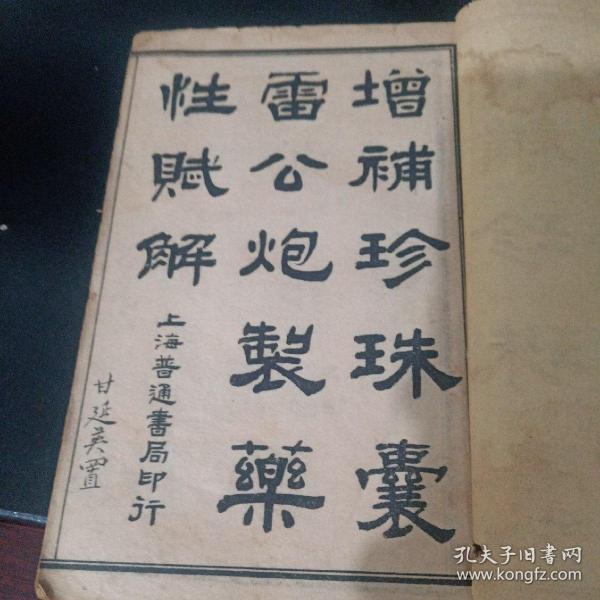 增補珍珠囊
雷公炮製藥
性賦解
上海普通書局印行
甘延英置
孔夫子旧書网
www.kongfz.com